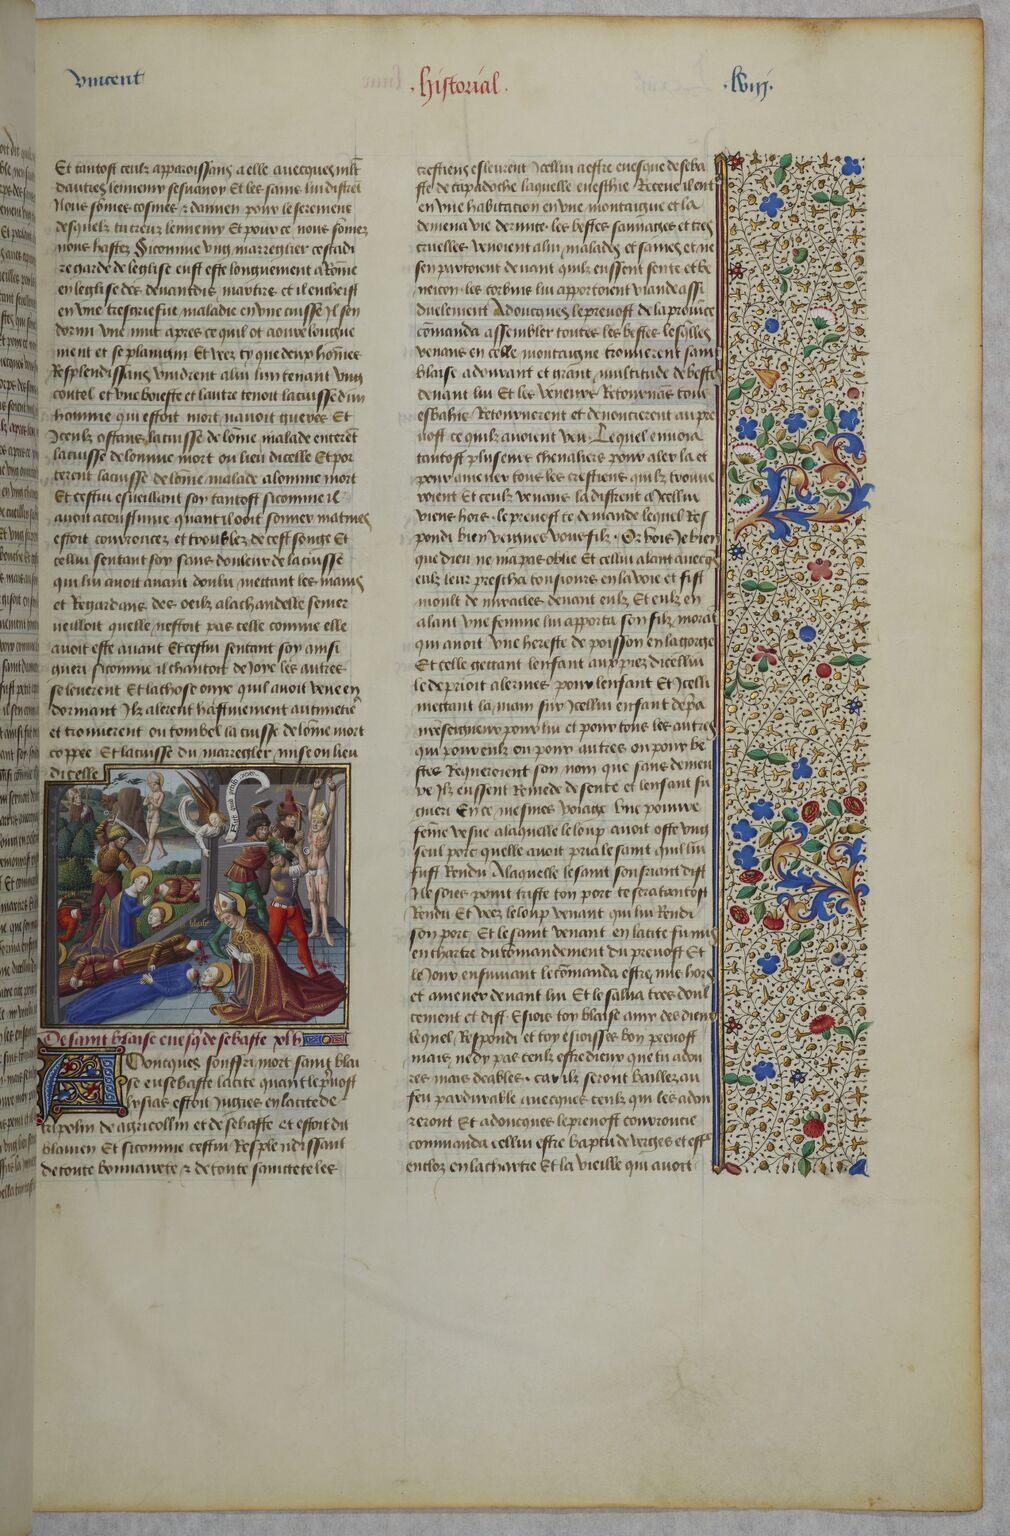 Vincent
.historial.
.lviij.
Et tantost ceulx apparoissans a elle avecques
dautres lennemy sesvanoy Et les sains lui distrent
Nous sommes cosmes et damien pour le serement
desquelz tu creuz lennemy Et pour ce nous sommes
nous hastez Sicomme ung marreglier cestadi
re garde de leglise eust este longuement a Rome
en leglise des devantdis martirs et il encheist
en une tresgriefve maladie en une cuisse Il sen
dormi une nuit apres ce quil ot
ment et se plaingni Et vez cy que deux hommes
Resplendissans vindrent a lui lun tenant ung
coutel et une boueste et lautre tenoit la cuisse dun
homme qui estoit mort navoit gueres Et
Iceulx ostans la cuisse de lomme malade enterent
la cuisse de lomme mort ou lieu dicelle Et por
terent la cuisse de lomme malade a lomme mort
Et cestui esveillant soy tantost sicomme il
avoit acoustume quant il ooit sonner matines
estoit couroucez et troublez de cest songe Et
cellui sentant soy sans douleur de la cuisse
qui lui avoit avant doulu mettant les mains
et Regardans des oeilz a la chandelle sesmer
veilloit quelle nestoit pas telle comme elle
avoit este avant Et cestui sentant soy ainsi
gueri sicomme il chantoit de Joye les autres
se leverent Et la chose ouye quil avoit veue en
dormant Ilz alerent hastivement au
et trouverent ou tombel la cuisse de lomme mort
coppee Et la cuisse du marreglier mise ou lieu
dicelle
blaise
De saint blaise evesque de sebaste xlij
Adoncques souffri mort saint blai
se en sebaste la cite quant le prevost
lysias estoit Juges en la cite de
tripolin de agricollin et de sebaste et estoit dit
blaisien Et sicomme cestui Resplendissant
de toute bonnairete et de toute sainctete les
crestiens esleurent Icellui a estre evesque de seba
ste de capadoche laquelle eveschie Receue il ent
en une habitacion en une montaigne et la
demena vie dermite. les bestes sauvages et tres
cruelles venoient a lui malades et saines et ne
sen partoient devant quilz eussent sente et be
neicon. les corbins lui apportoient viande assi
duelement Adoncques le prevost de la province
commanda assembler toutes les bestes lesquelles
venans en celle montaigne trouverent saint
blaise adourant et grant multitude de bestes
devant lui Et les veneurs Retournans tous
esbahis Retournerent et denoncierent au pre
vost ce quilz avoient veu Lequel envoia
tantost plusieurs chevaliers pour aler la et
pour amener tous les crestiens quilz trouve
roient Et ceulx venans la distrent a Icellui
viens hors. le prevost te demande lequel Res
pondi bien veignes vous filz. Or vois Je bien
que dieu ne ma pas oblie Et cellui alant avecques
eulx leur prescha tousiours en la voie et fist
moult de miracles devant eulx Et eulx en
alant une femme lui apporta son filz morant
qui avoit une hereste de poisson en la gorge
Et celle gettant lenfant aux piez dicellui
le deprioit a lermes pour lenfant Et Icelli
mettant la main sur Icellui enfant depria
nostreseigneur pour lui et pour tous les autres
qui pour eulx ou pour autres ou pour be
stes Requerroient son nom que sans demeu
re Ilz eussent Remede de sente et lenfant fu
gueri En ce mesmes voiage une pouvre
feme vesve a laquelle le loup avoit oste ung
seul porc quelle avoit pria le saint quil lui
fust Rendu A laquelle le saint sousriant dist
Ne soies point triste ton porc te sera tantost
Rendu Et vez le loup venant qui lui Rendi
son porc Et le saint venant en la cite fu mis
en chartre du commandement du prevost Et
le Jour ensuivant le commanda estre mis hors
et amener devant lui Et le salua tres doul
cement et dist Esjois toy blaise amy des dieux
lequel Respondi et toy esjoisses bon prevost
mais ne dy pas ceulx estre dieux que tu adou
res mais deables. car ilz seront baillez au
feu pardurable avecques ceulx qui les adou
reront Et adoncques le prevost couroucie
commanda cellui estre batu de verges et estre
encloz en la chartre Et la vieille qui avoit